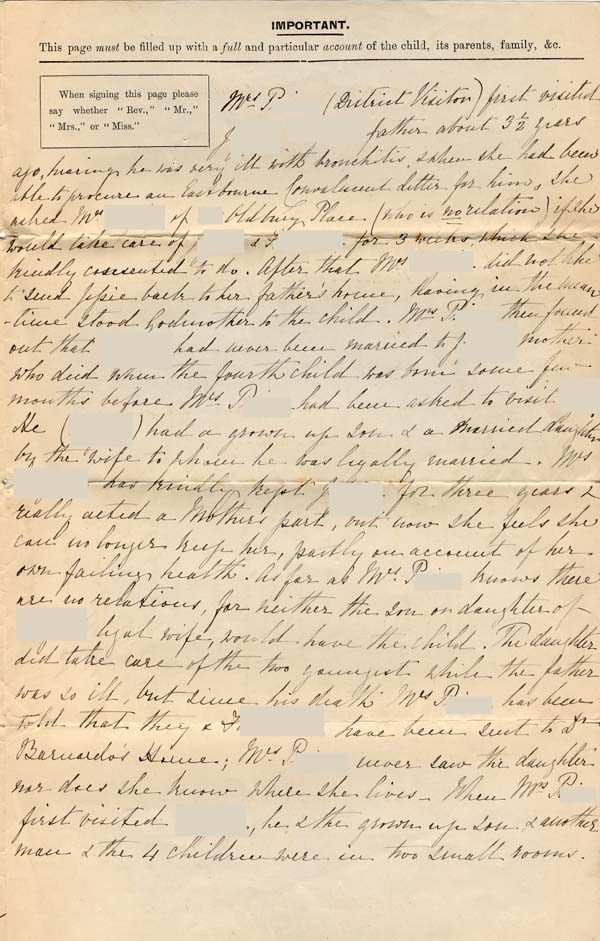 IMPORTANT.
This page must be filled up with a full and particular account of the child, its parents, family, &c.
When signing this page please
say whether "Rev.," "Mr.,"
"Mrs.," or "Miss."
Mrs P (District Visitor) first visited
J father about 3 1/2 years
ago, hearing he was very ill with bronchitis, & when she had been
able to procure an Eastbourne Convalescent letter for him, she
asked Mrs of Oldbury Place (who is no relation) if she
would take care of & F for 3 weeks, which she
kindly consented to do. After that Mrs did not like
to send Jessie back to her father's home, having in the mean
-time stood Godmother to the child. Mrs P. then found
out that had never been married to J. mother
who died when the fourth child was born some few
months before Mrs P had been asked to visit
He ( ) had a grown up son & a married daughter
by the wife to whom he was legally married. Mrs
has kindly kept J . for three years &
really acted a Mother's part, but now she feels she
can no longer keep her, partly on account of her
own failing health. As far as Mrs P knows there
are no relations, for neither the son or daughter of
legal wife, would have the child. The daughter
did take care of the two youngest while the father
was so ill, but since his death Mrs P has been
told that they & F have been sent to Dr
Barnardo's Home; Mrs P. never saw the daughter
nor does she know where she lives – When Mrs P.
first visited , he & the grown up son, & another
man & the 4 children were in two small rooms.